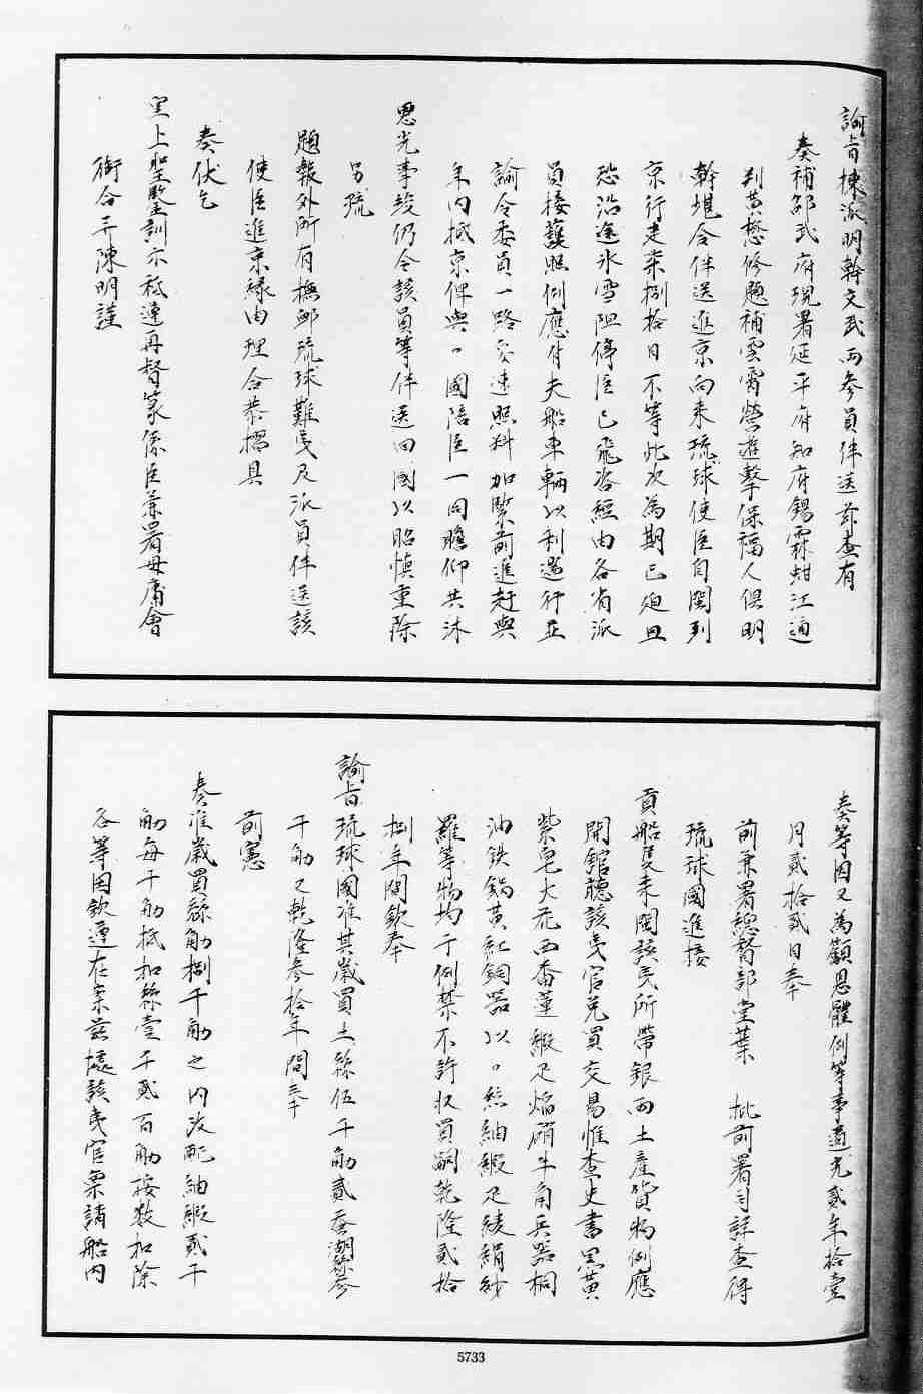 諭旨揀派明幹文武兩參員伴送茲查有
奏補邵武府現署延平府知府錫霖蚶江通
判黃懋修題補雲霄營遊擊保福人俱明
幹堪令伴送進京向来琉球使臣自閩到
京行走柒捌拾日不等此次為期已廹且
恐沿途氷雪阻停臣已飛咨經由各省派
員接護照例應付夫船車輛以利遄行並
諭令委員一路妥速照料加緊前進赶與
年内抵京俾與各國陪臣一同瞻仰共沐
恩光事竣仍令該員等伴送回國以昭慎重除
另疏
題報外所有撫卹琉球難夷及派員伴送該
使臣進京緣由理合恭摺具
奏伏乞
皇上聖鑒訓示祗遵再督篆係臣兼署毋庸會
銜合并陳明謹
奏等因又為顧恩體例等事道光貳年拾壹
月貳拾貳日奉
前兼署總督部堂葉 批前署司詳查得
琉球國進接
貢船隻来閩該夷所帶銀兩土產貨物例應
開館聽該夷官兌買交易惟查史書黑黃
紫皂大花西番蓮緞疋焰硝牛角兵器桐
油鉄鍋黃紅銅器以及絲紬緞疋綾絹紗
羅等物均干例禁不許收買嗣乾隆貳拾
捌年間欽奉
諭旨琉球國准其歲買土絲伍千觔貳蚕湖絲叁
千觔又乾隆叁拾年間
前憲
奏准歲買絲觔捌千觔之内改配紬緞貳千
觔每千觔抵扣絲壹千貳百觔按数扣除
各等因欽遵在案茲據該夷官稟請船内
5733